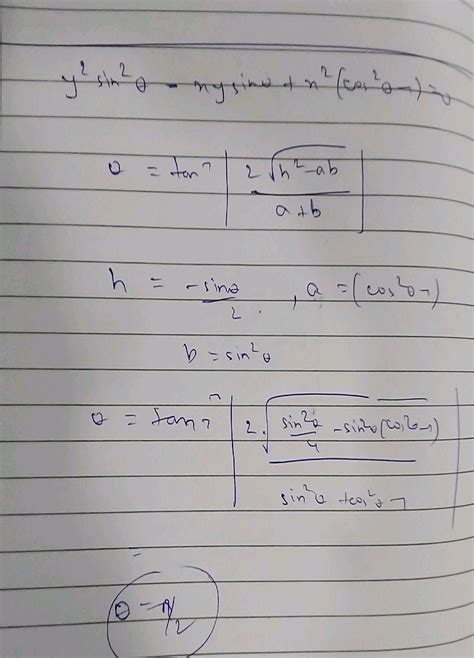 y² sin²θ - xy sinθ + x² (cos²θ -1) = 0
θ = tan⁻¹ | 2 √(h² - ab) / (a + b) |
h = -sinθ / 2 , a = (cos²θ -1)
b = sin²θ
θ = tan⁻¹ | 2 √(sin²θ / 4 - sin²θ (cos²θ -1)) / (sin²θ + cos²θ -1) |
=
θ = π/2